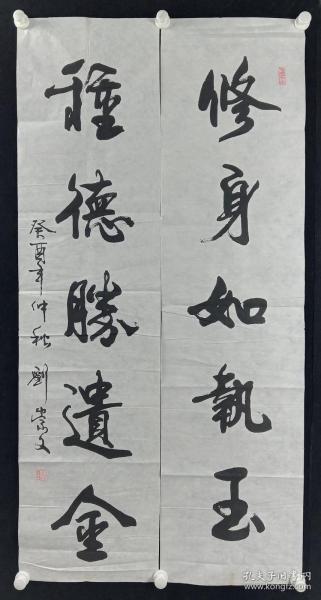 修身如執玉
種德勝遺金
癸酉年仲秋 劉崇文
孔夫子旧书网